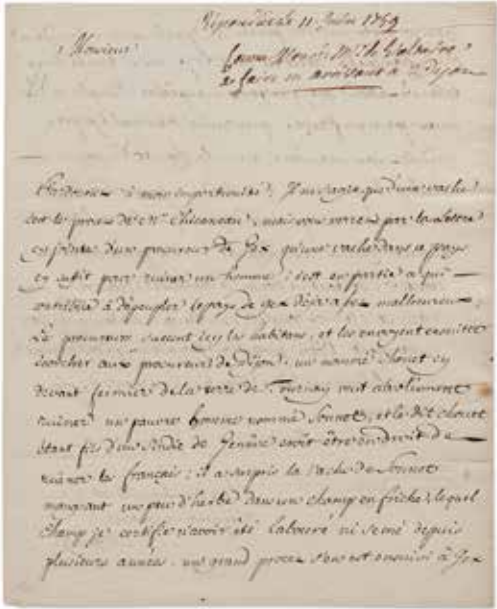 Répondu le 11 Juin 1759
Monsieur
à faire en arrivant à Dijon
Pardonnez à mon importunité; Il ne s'agit que d'une vache
c'est le procez de Mr. Chicaneau, mais vous verrez par la lettre
cy jointe d'un procureur de Gex qu'une vache dans ce pays
cy sufit pour ruiner un homme; c'est en partie ce qui
contribue à dépeupler le pays de Gex déja si malheureux;
Les procureurs sucent icy les habitans, et les envoyent ensuite
écorcher aux procureurs de Dijon. un nommé Chouet cy
devant fermier de la terre de Tournay veut absolument
ruiner un pauvre homme nommé Sonnet, et le dit chouet
étant fils d'un sindic de Genève croit être en droit de
ruiner les français; il a surpris la vache de Sonnet
mangeant un peu d'herbe dans un champ en friche, lequel
champ je certifie n'avoir été labouré ni semé depuis
plusieurs années. un grand procez s'en est ensuivi à Gex